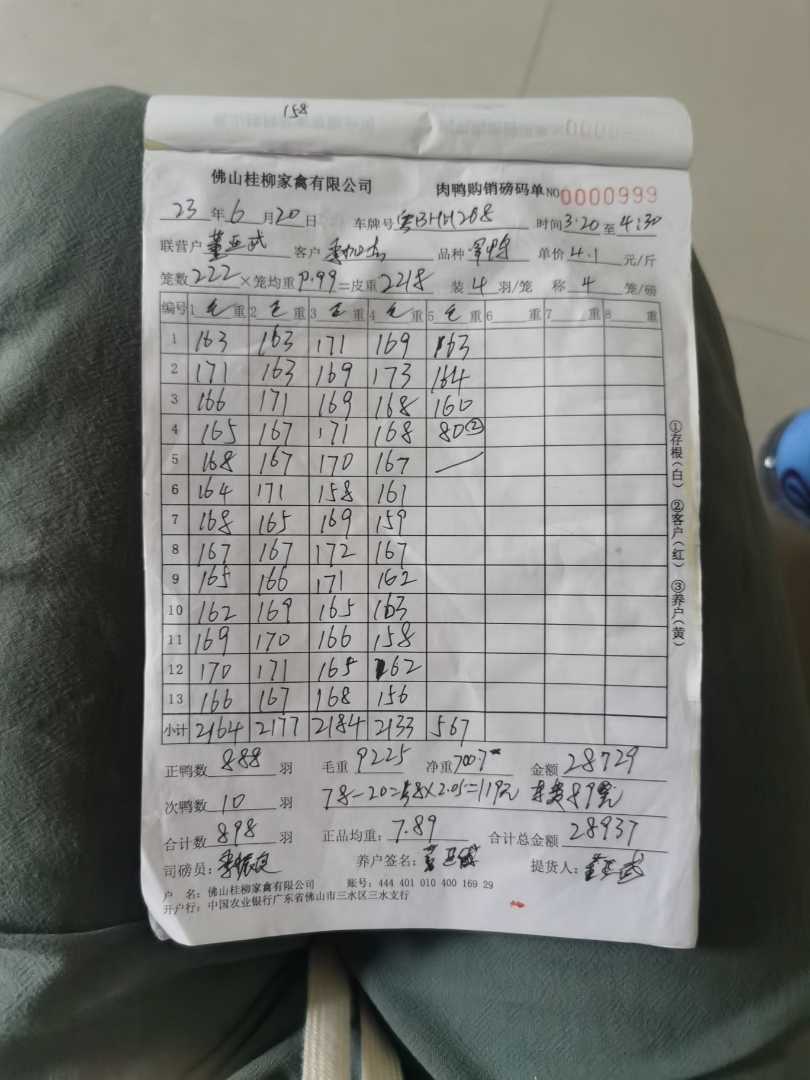 158
佛山桂柳家禽有限公司 肉鸭购销磅码单 NO 0000999
23 年 6 月 20 日 车牌号 粤BHH268 时间 3:20 至 4:30
联营户 董亚武 客户 品种 单价 4.1 元/斤
笼数 222 ×笼均重 9.99 =皮重 2218 装 4 羽/笼 称 4 笼/磅
编号 1 毛 重 2 毛 重 3 毛 重 4 毛 重 5 毛 重 6 重 7 重 8 重
1 163 163 171 169 163
2 171 163 169 173 164
3 166 171 169 168 160
4 165 167 171 168 80②
5 168 167 170 167
6 164 171 158 161
7 168 165 169 159
8 167 167 172 167
9 165 166 171 162
10 162 169 165 163
11 169 170 166 158
12 170 171 165 162
13 166 167 168 156
小计 2164 2177 2184 2133 567
正鸭数 888 羽 毛重 9225 净重 7007 金额 28729
次鸭数 10 羽 78-20=58×2.05=119元 89元
合计数 898 羽 正品均重: 7.89 合计总金额 28937
司磅员: 养户签名: 董亚武 提货人: 董亚武
户 名: 佛山桂柳家禽有限公司 账号: 444 401 010 400 169 29
开户行: 中国农业银行广东省佛山市三水区三水支行
①存根(白) ②客户(红) ③养户(黄)